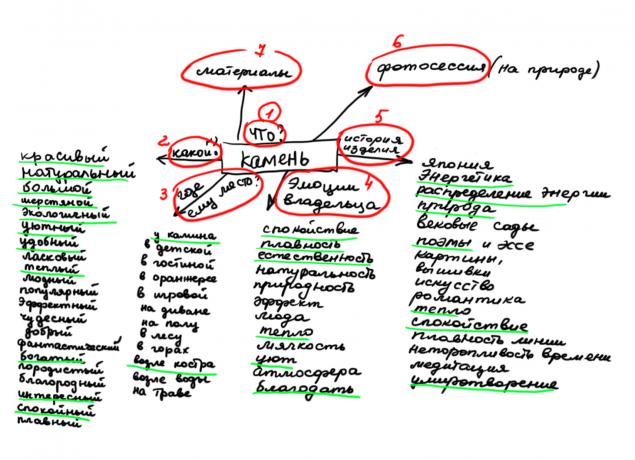 7
материалы
6
фотосессия (на природе)
1
что?
2
какой?
камень
5
история
изделия
3
где
ему место?
4
Эмоции
владельца
красивый
натуральный
большой
шерстяной
экологичный
уютный
удобный
ласковый
теплый
модный
популярный
эффектный
чудесный
добрый
фантастический
богатый
породистый
благородный
интересный
спокойный
плавный
у камина
в детской
в гостиной
в оранжерее
в игровой
на диване
на полу
в лесу
в горах
возле костра
возле воды
на траве
спокойствие
плавность
естественность
натуральность
природность
эффект
мода
тепло
мягкость
уют
атмосфера
благодать
япония
Энергетика
распределение энергии
природа
вековые сады
поэмы и эссе
картины,
вышивки
искусство
романтика
тепло
спокойствие
плавность линии
неторопливость времени
медитация
умиротворение